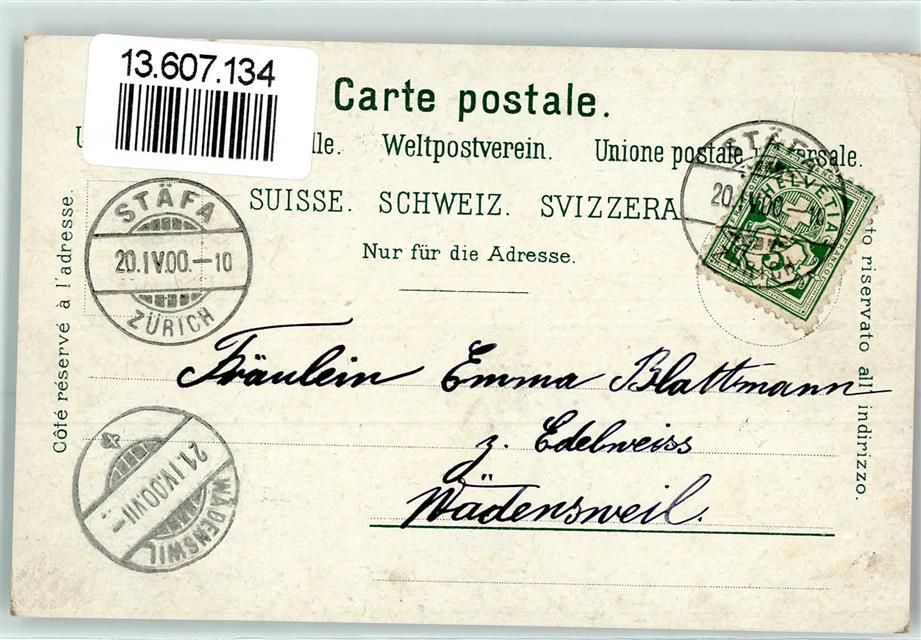 13.607.134
Carte postale.
Weltpostverein. Unione postale
SUISSE. SCHWEIZ. SVIZZERA
Nur für die Adresse.
Côté réservé à l'adresse.
riservato all indirizzo.
STÄFA
20.IV.00.-10
ZÜRICH
STÄFA
20.IV.00.
HELVETIA
5
FRANCO
Fräulein Emma Blattmann
z. Edelweiss
Wädensweil.
21.IV.00.VII-
WÄDENSWIL